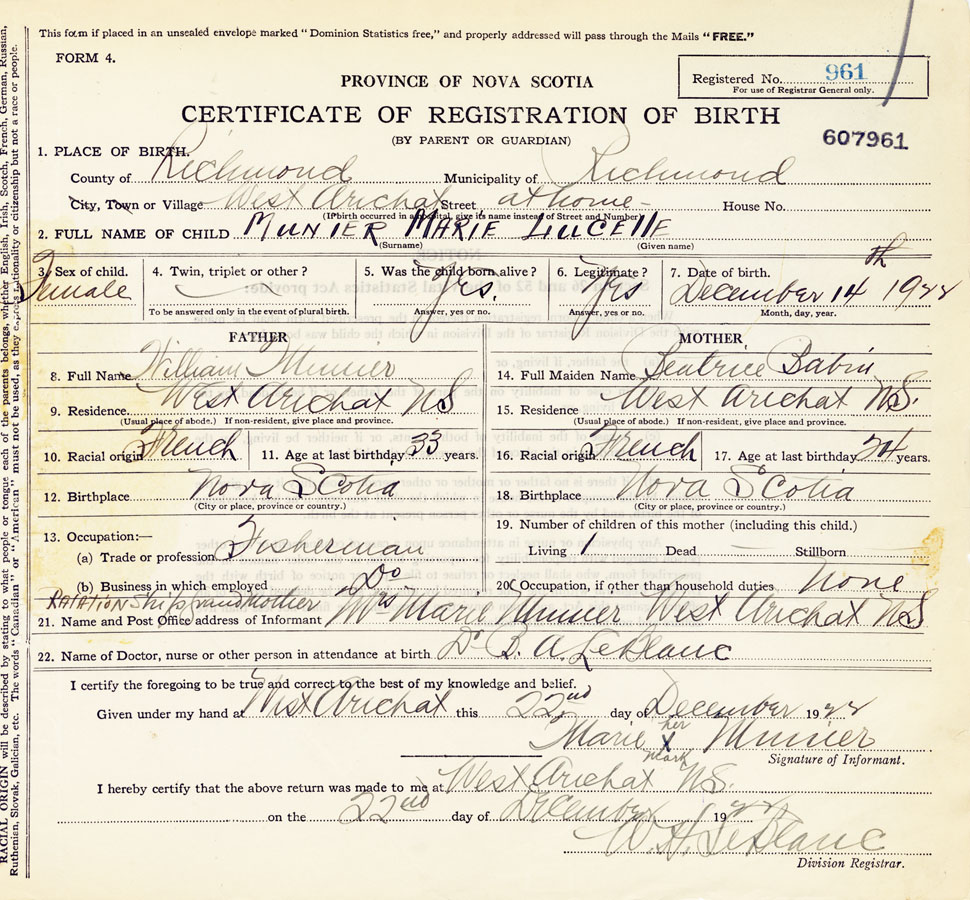 This form if placed in an unsealed envelope marked "Dominion Statistics free," and properly addressed will pass through the Mails "FREE."
FORM 4.
Registered No. 961
For use of Registrar General only.
PROVINCE OF NOVA SCOTIA
CERTIFICATE OF REGISTRATION OF BIRTH
(BY PARENT OR GUARDIAN)
607961
1. PLACE OF BIRTH.
County of Richmond Municipality of Richmond
City, Town or Village West Arichat Street at home - House No.
(If birth occurred in a hospital, give its name instead of Street and Number)
2. FULL NAME OF CHILD MUNIER MARIE LUCELLE
(Surname) (Given name)
3. Sex of child. 4. Twin, triplet or other? 5. Was the child born alive? 6. Legitimate? 7. Date of birth.
Female Yes. Yes December 14th
To be answered only in the event of plural birth. Answer, yes or no. Answer, yes or no. Month, day, year.
FATHER MOTHER
8. Full Name William Munier 14. Full Maiden Name Beatrice Babin
9. Residence. West Arichat NS 15. Residence West Arichat N.S.
(Usual place of abode.) If non-resident, give place and province. (Usual place of abode.) If non-resident, give place and province.
10. Racial origin French 11. Age at last birthday 33 years. 16. Racial origin French 17. Age at last birthday 24 years.
12. Birthplace Nova Scotia 18. Birthplace Nova Scotia
(City or place, province or country.) (City or place, province or country.)
13. Occupation:— 19. Number of children of this mother (including this child.)
(a) Trade or profession Fisherman Living 1 Dead Stillborn
(b) Business in which employed Do 20. Occupation, if other than household duties. None
RElATIONShip grandmother
21. Name and Post Office address of Informant Mrs Marie Munier West Arichat NS
22. Name of Doctor, nurse or other person in attendance at birth. Dr B. A. LeBlanc
I certify the foregoing to be true and correct to the best of my knowledge and belief.
Given under my hand at West Arichat this 22nd day of December
Marie her X mark Munier
Signature of Informant.
I hereby certify that the above return was made to me at West Arichat N.S.
on the 22nd day of December
W. H. LeBlanc
Division Registrar.
RACIAL ORIGIN will be described by stating to what people or tongue each of the parents belongs, whether English, Irish, Scotch, French, German, Russian,
Ruthenian, Slovak, Galician, etc. The words "Canadian" or "American" must not be used, as they express nationality or citizenship but not a race or people.